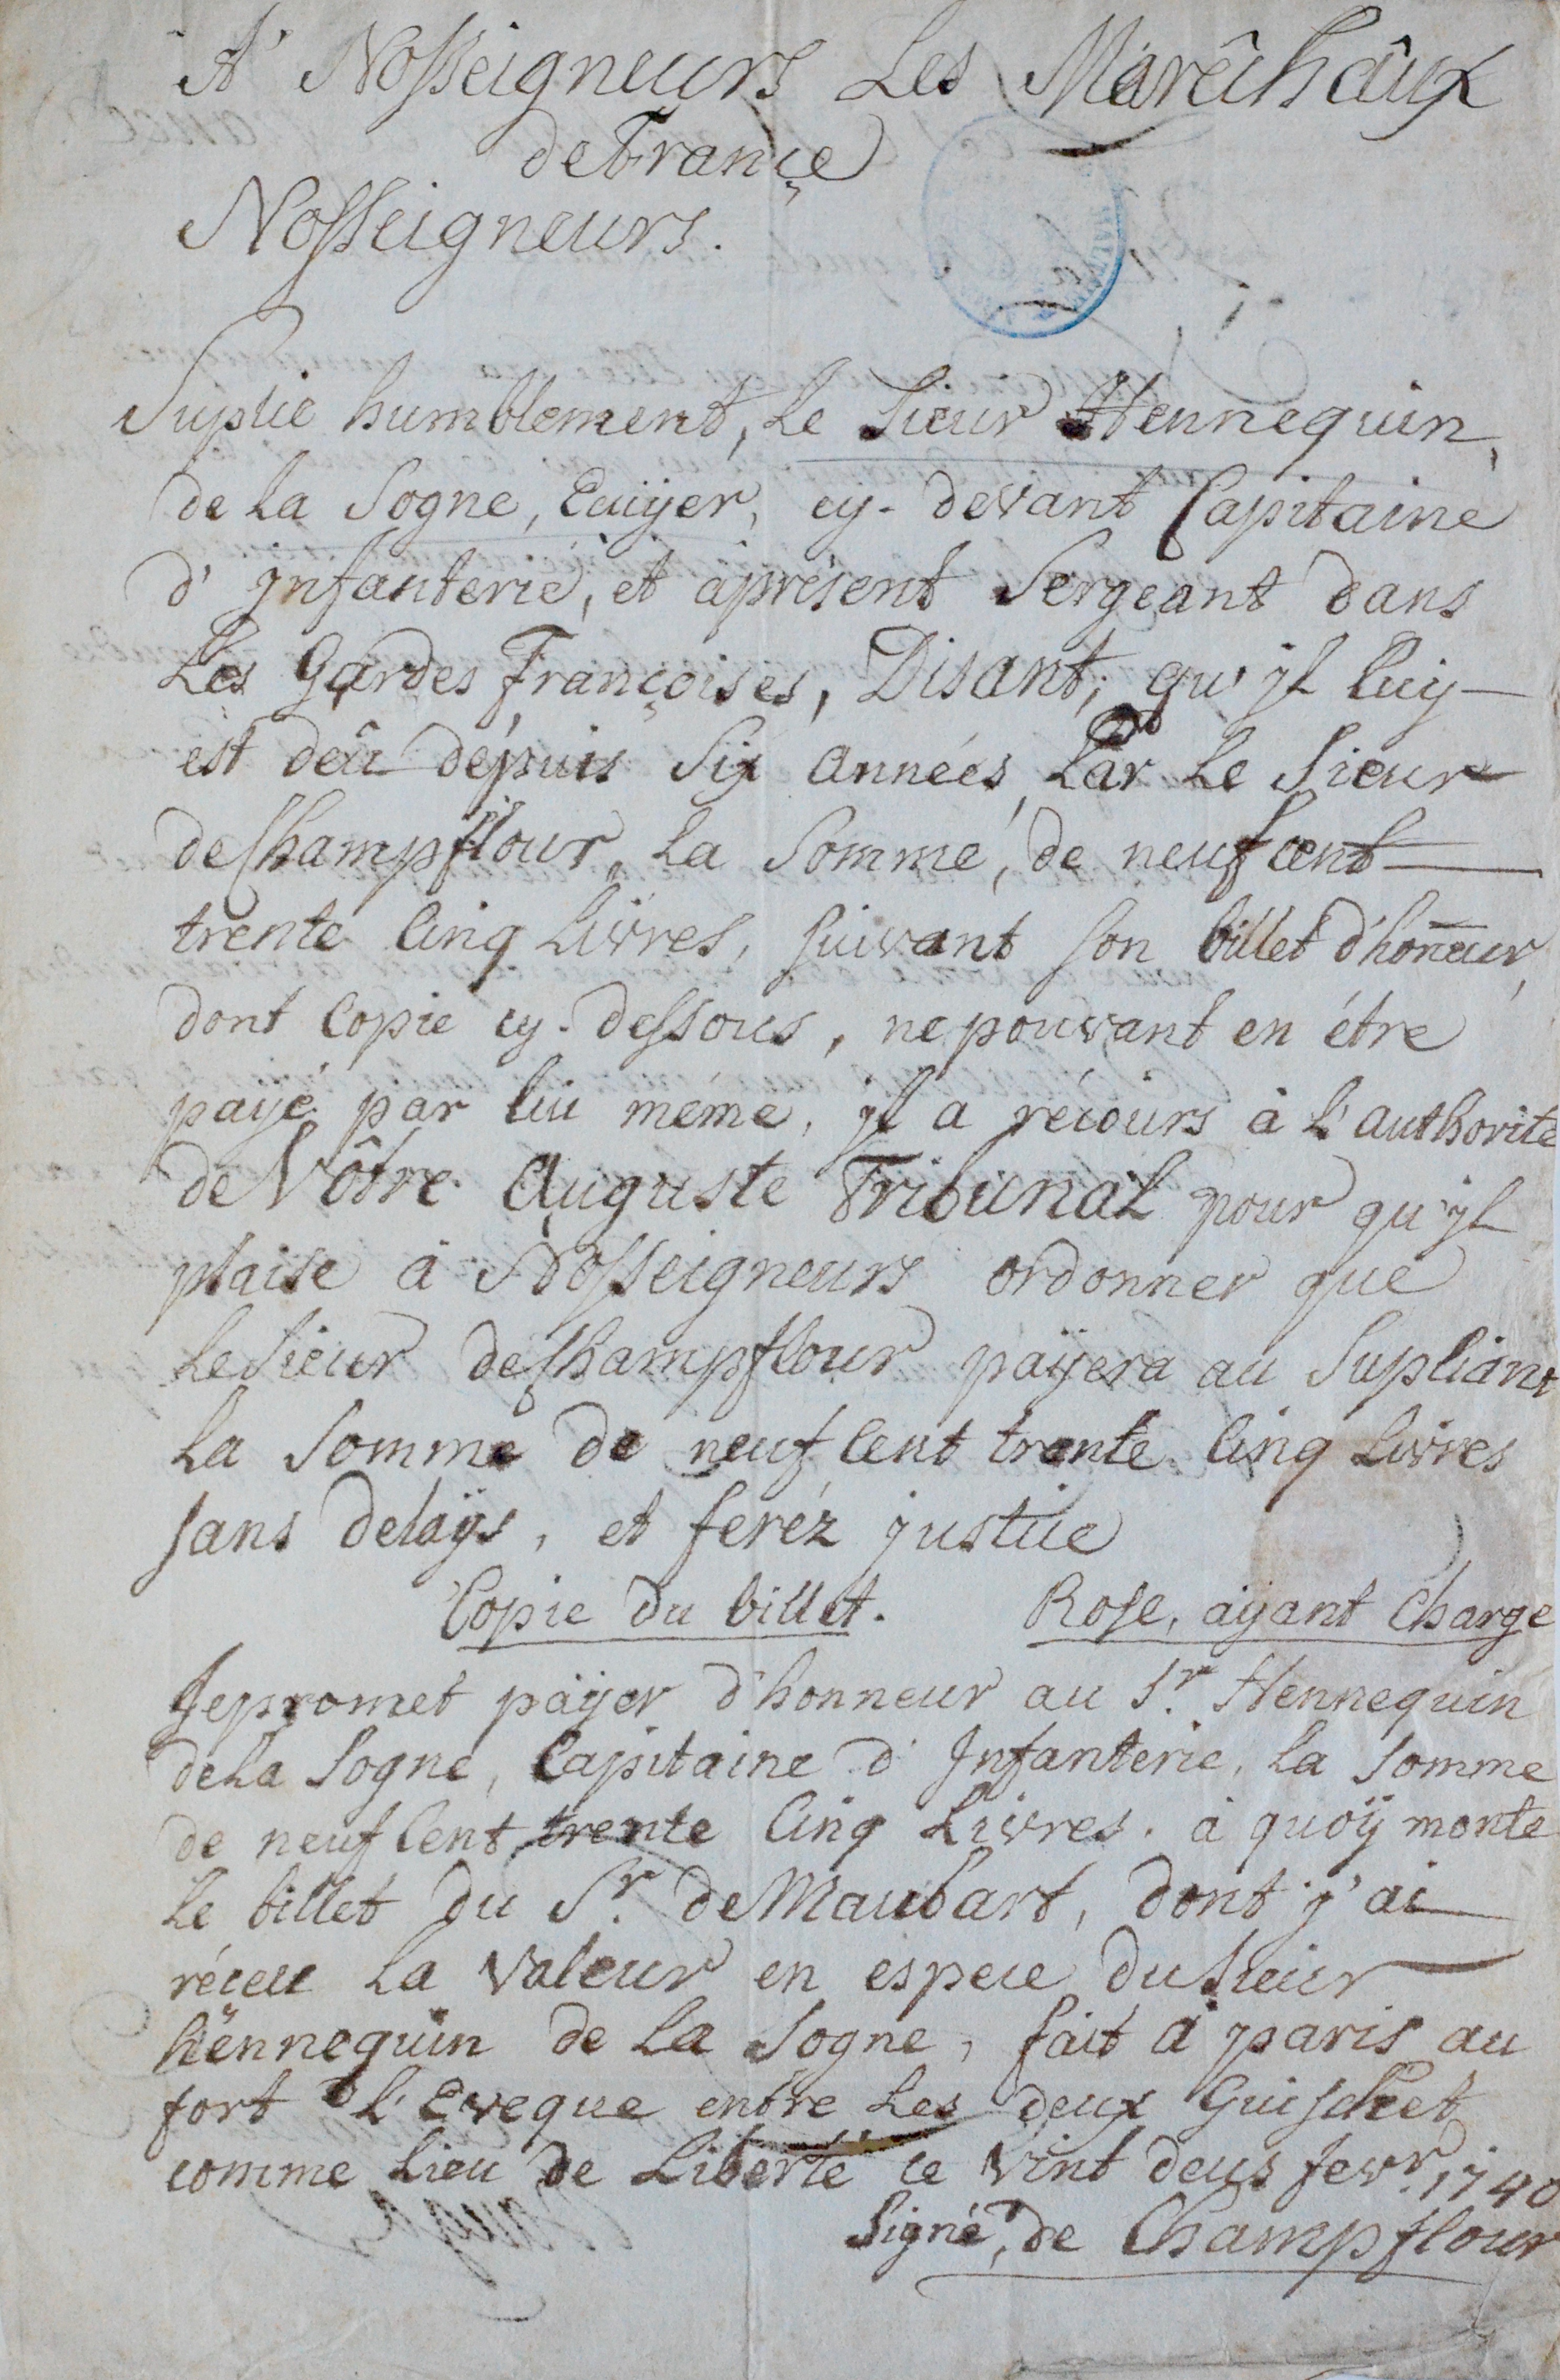 A' Nosseigneurs Les Marêchâux
de Françe
Nosseigneurs.
Suplie humblement, Le Sieur Hennequin,
de La Sogne, Ecuÿer, cy-devant Capitaine
d'ynfanterie, et aprésent Sergeant dans
Les Gardes Françoises, Disant, qu'yl luy
est deû dépuis Six Années, Par Le Sieur
de Champflour, La Somme, de neuf cent
trente Cinq Livres, suivant son billet d'honeur,
dont Copie cy-dessous, ne pouvant en étre
payé par lui méme, yl a récours à L'authorité
de Vôtre Auguste Tribunal pour qu'yl
plaise à Nosseigneurs ordonner que
Le Sieur de Champflour paÿera au Supliant
La Somme de neuf Cent trente Cinq Livres
sans delaÿs, et feréz justice
Copie Du billet. Rose, aÿant Charge
Je promet paÿer d'honneur au Sr. Hennequin
de La Sogne, Capitaine d'Infanterie, La Somme
de neuf Cent trente Cinq Livres. à quoÿ monte
Le billet du Sr. de Maubart, dont j'ai
réceu La Valeur en espece du Sieur
hënnequin de La Sogne, fait à paris au
fort L'Eveque entre Les deux Guischet
comme Lieu de Liberté ce Vint deus fevr. 1740
Signé, de Champflour